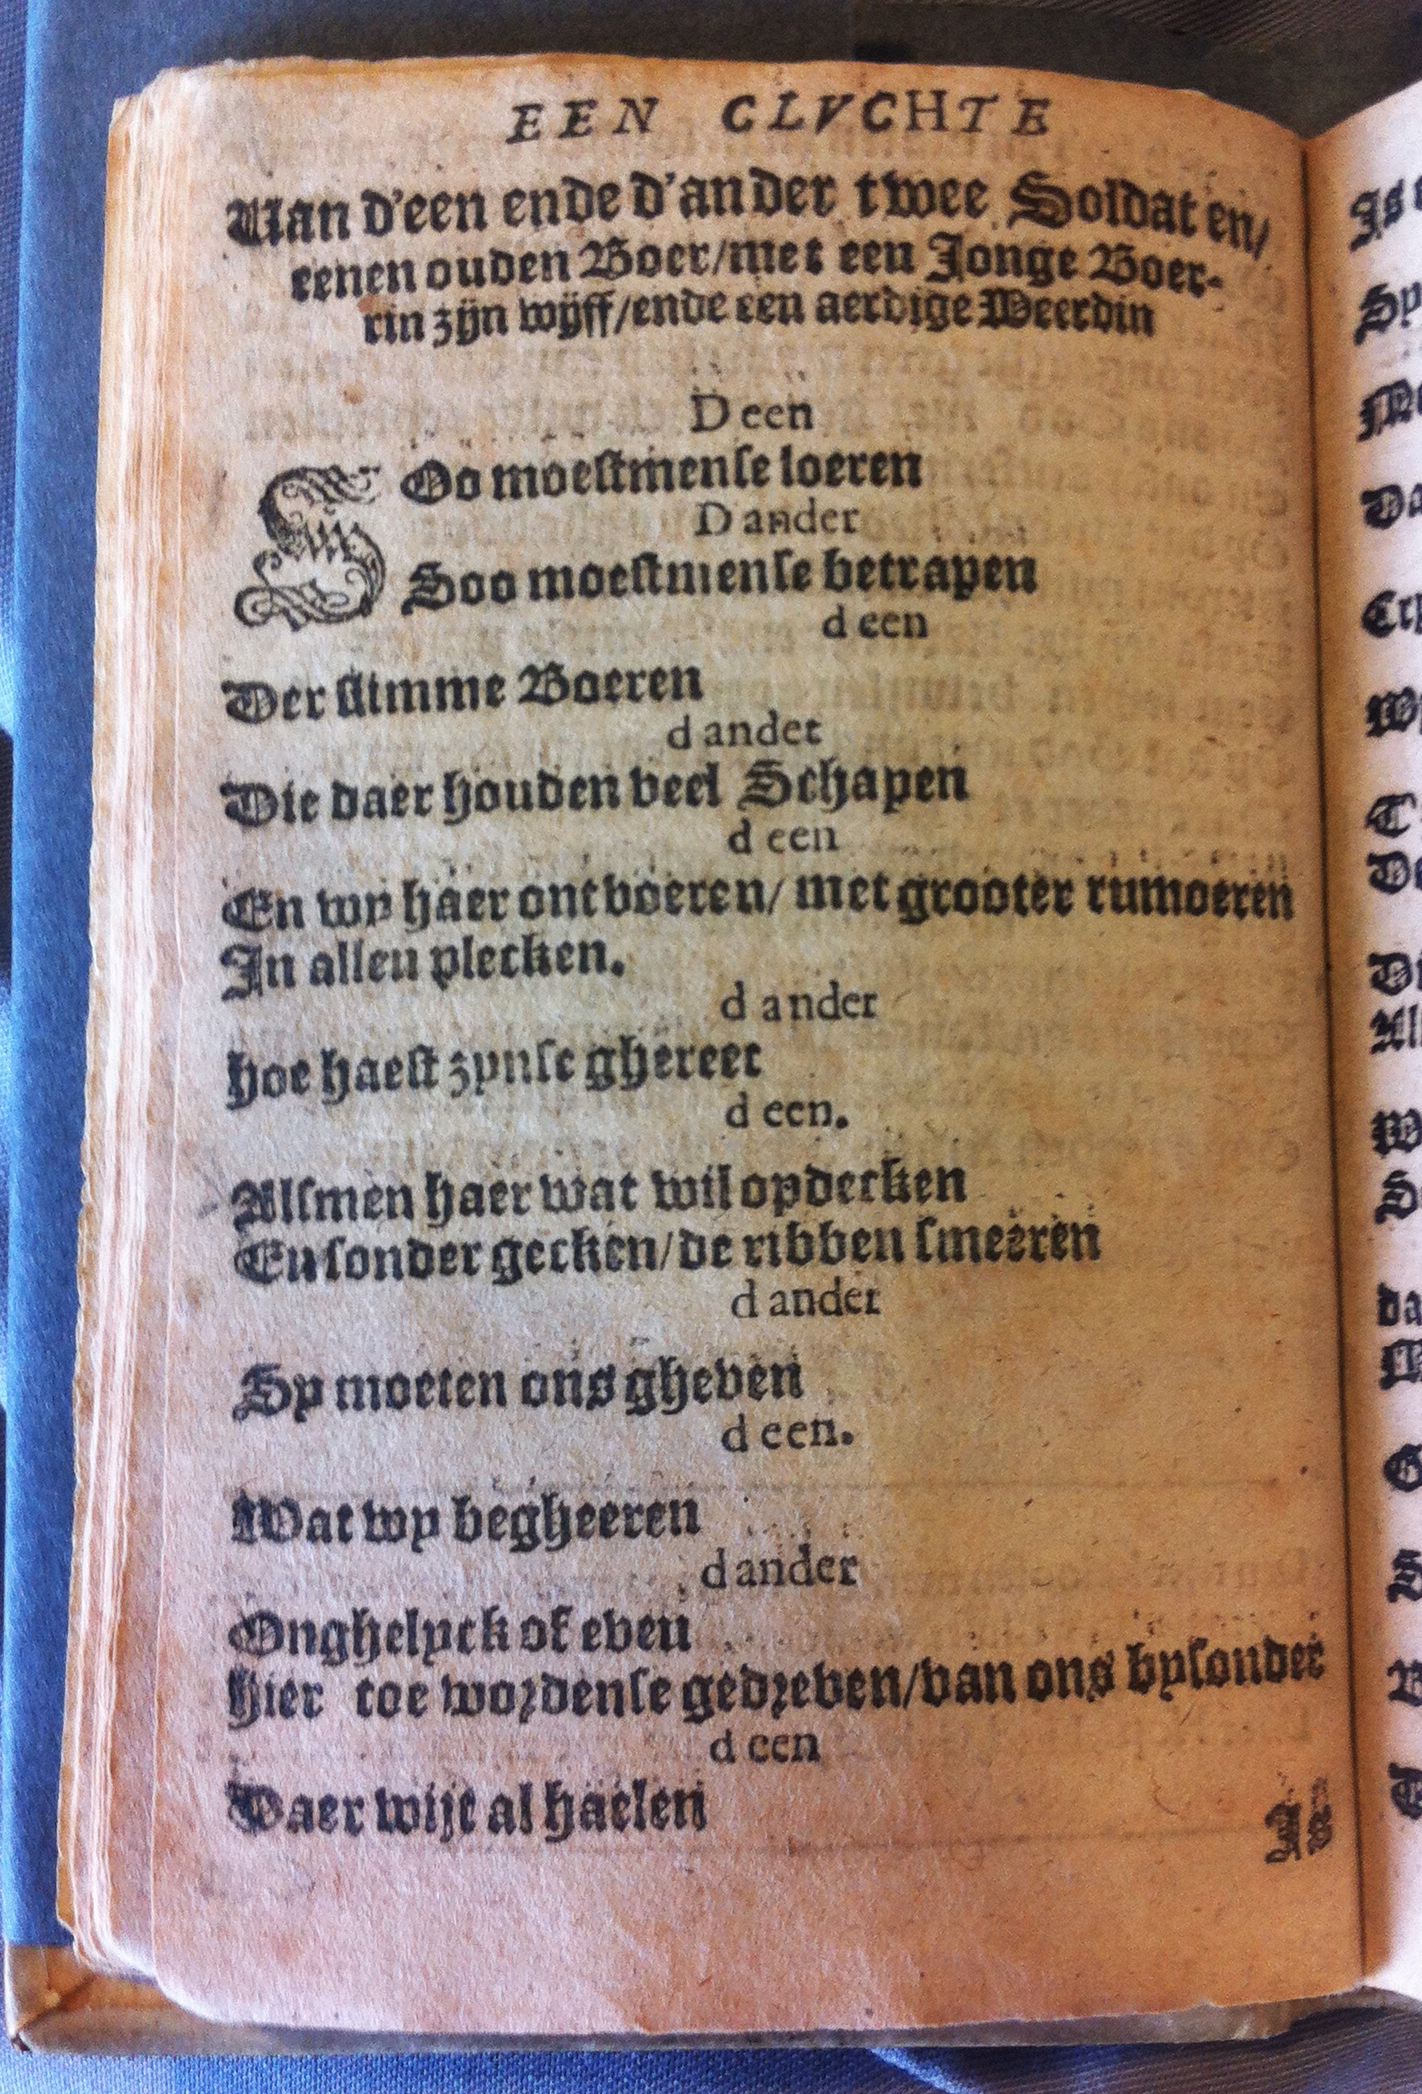 EEN CLVCHTE
Van d'een ende d'ander twee Soldaten/
eenen ouden Boer/met een Jonge Boer-
rin zijn wijff/ende een aerdige Weerdin
Deen
SOo moestmense loeren
Dander
Soo moestmense betrapen
deen
Der slimme Boeren
dander
Die daer houden veel Schapen
deen
En wy haer ontvoeren/ met grooter rumoeren
In allen plecken.
dander
hoe haest zynse ghereet
deen.
Alsmen haer wat wil opdecken
En sonder gecken/de ribben smeeren
dander
Sy moeten ons gheven
deen.
Wat wy begheeren
dander
Onghelyck of even
hier toe wordense gedreven/van ons bysonder
deen
Daer wijt al haelen
Is